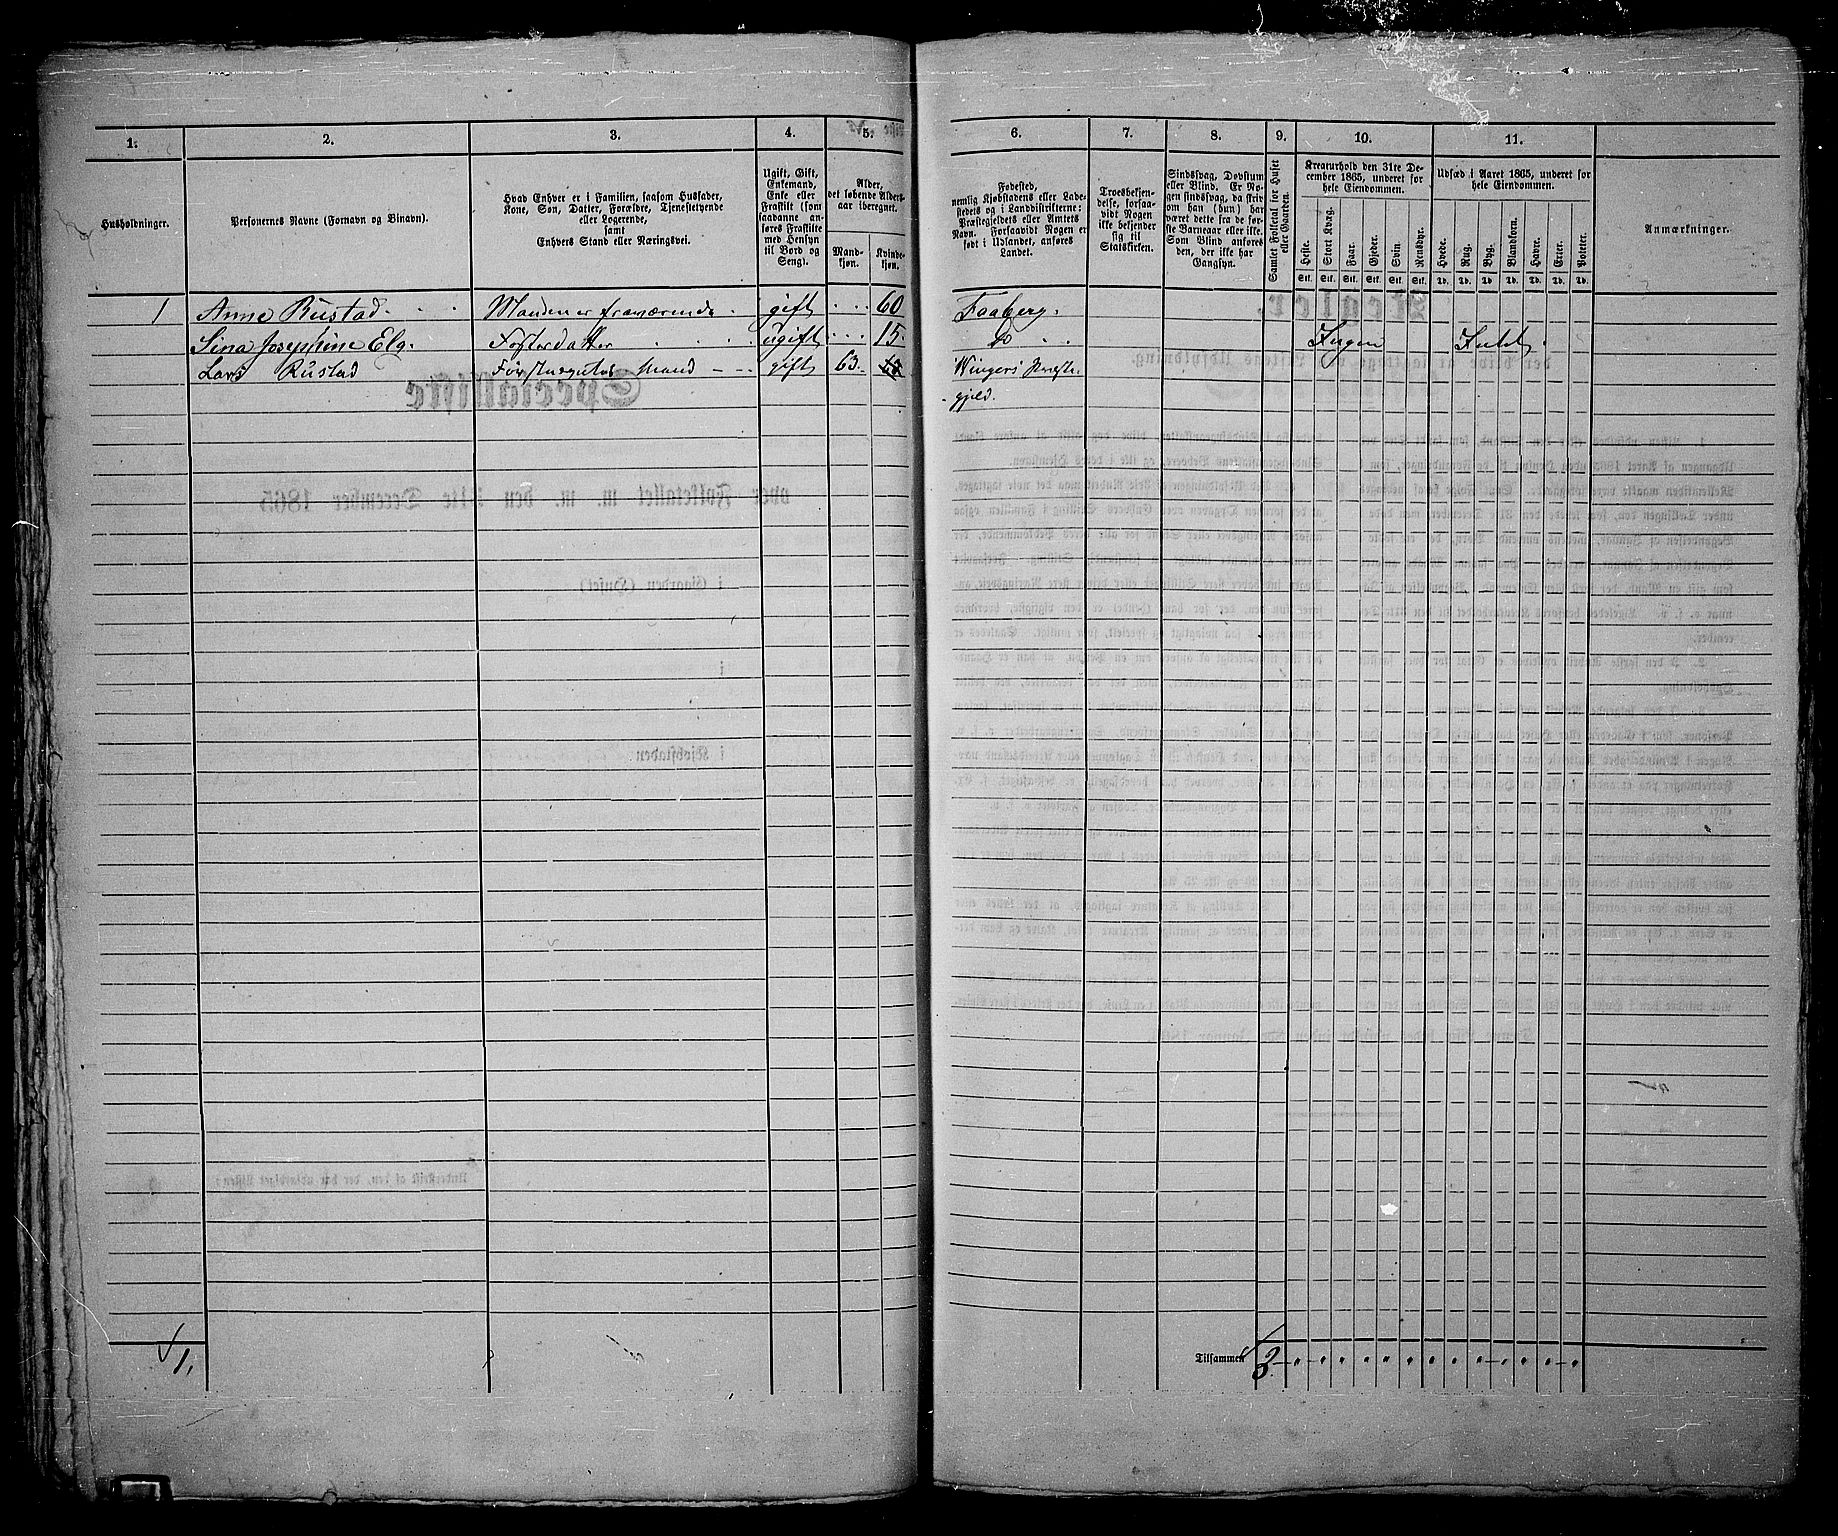 1. 2. 3. 4. 5. 6. 7. 8. 9. 10. 11.
Husholdninger.
Personernes Navne (Fornavn og Binavn).
Hvad Enhver er i Familien, saasom Husfader,
Kone, Søn, Datter, Forældre, Tjenestetyende
eller Logerende,
samt
Enhvers Stand eller Næringsvei.
Ugift, Gift,
Enkemand,
Enke eller
Fraskilt (som
saadanne an-
føres Fraskilte
med Hensyn
til Bord og
Seng).
Alder,
det løbende Alders-
aar iberegnet.
Mand-
kjøn.
Kvinde-
kjøn.
Fødested,
nemlig Kjøbstadens eller Lade-
stedets og i Landdistrikterne:
Præstegjeldets eller Amtets
Navn. Forsaavidt Nogen er
født i Udlandet, anføres
Landet.
Troesbekjen-
delse, forsaa-
vidt Nogen
ikke bekjender
sig til
Statskirken.
Sindssvag, Døvstum
eller Blind. Er No-
gen sindssvag, da skriv
om han (hun) har
været dette fra de før-
ste Barneaar eller ikke.
Som Blind anføres
den, der ikke har
Gangsyn.
Samlet Folketal for Huset
eller Gaarden.
Kreaturhold den 31te De-
cember 1865, underet for
hele Eiendommen.
Heste. Stort Kvæg. Faar. Gjeder. Svin. Rensdyr.
Stk. Stk. Stk. Stk. Stk. Stk.
Udsæd i Aaret 1865, underet for
hele Eiendommen.
Hvede. Rug. Byg. Blandkorn. Havre. Erter. Poteter.
Td. Td. Td. Td. Td. Td. Td.
Anmærkninger.
1 Anne Rustad. Manden er fraværende gift 60 Faaberg.
Sina Josephine Elg. Fosterdatter ugift 15. Do Ingen Intet
Lars Rustad Førstnævntes Mand gift 63. Wingers Præste-
gjeld.
1. Tilsammen 3